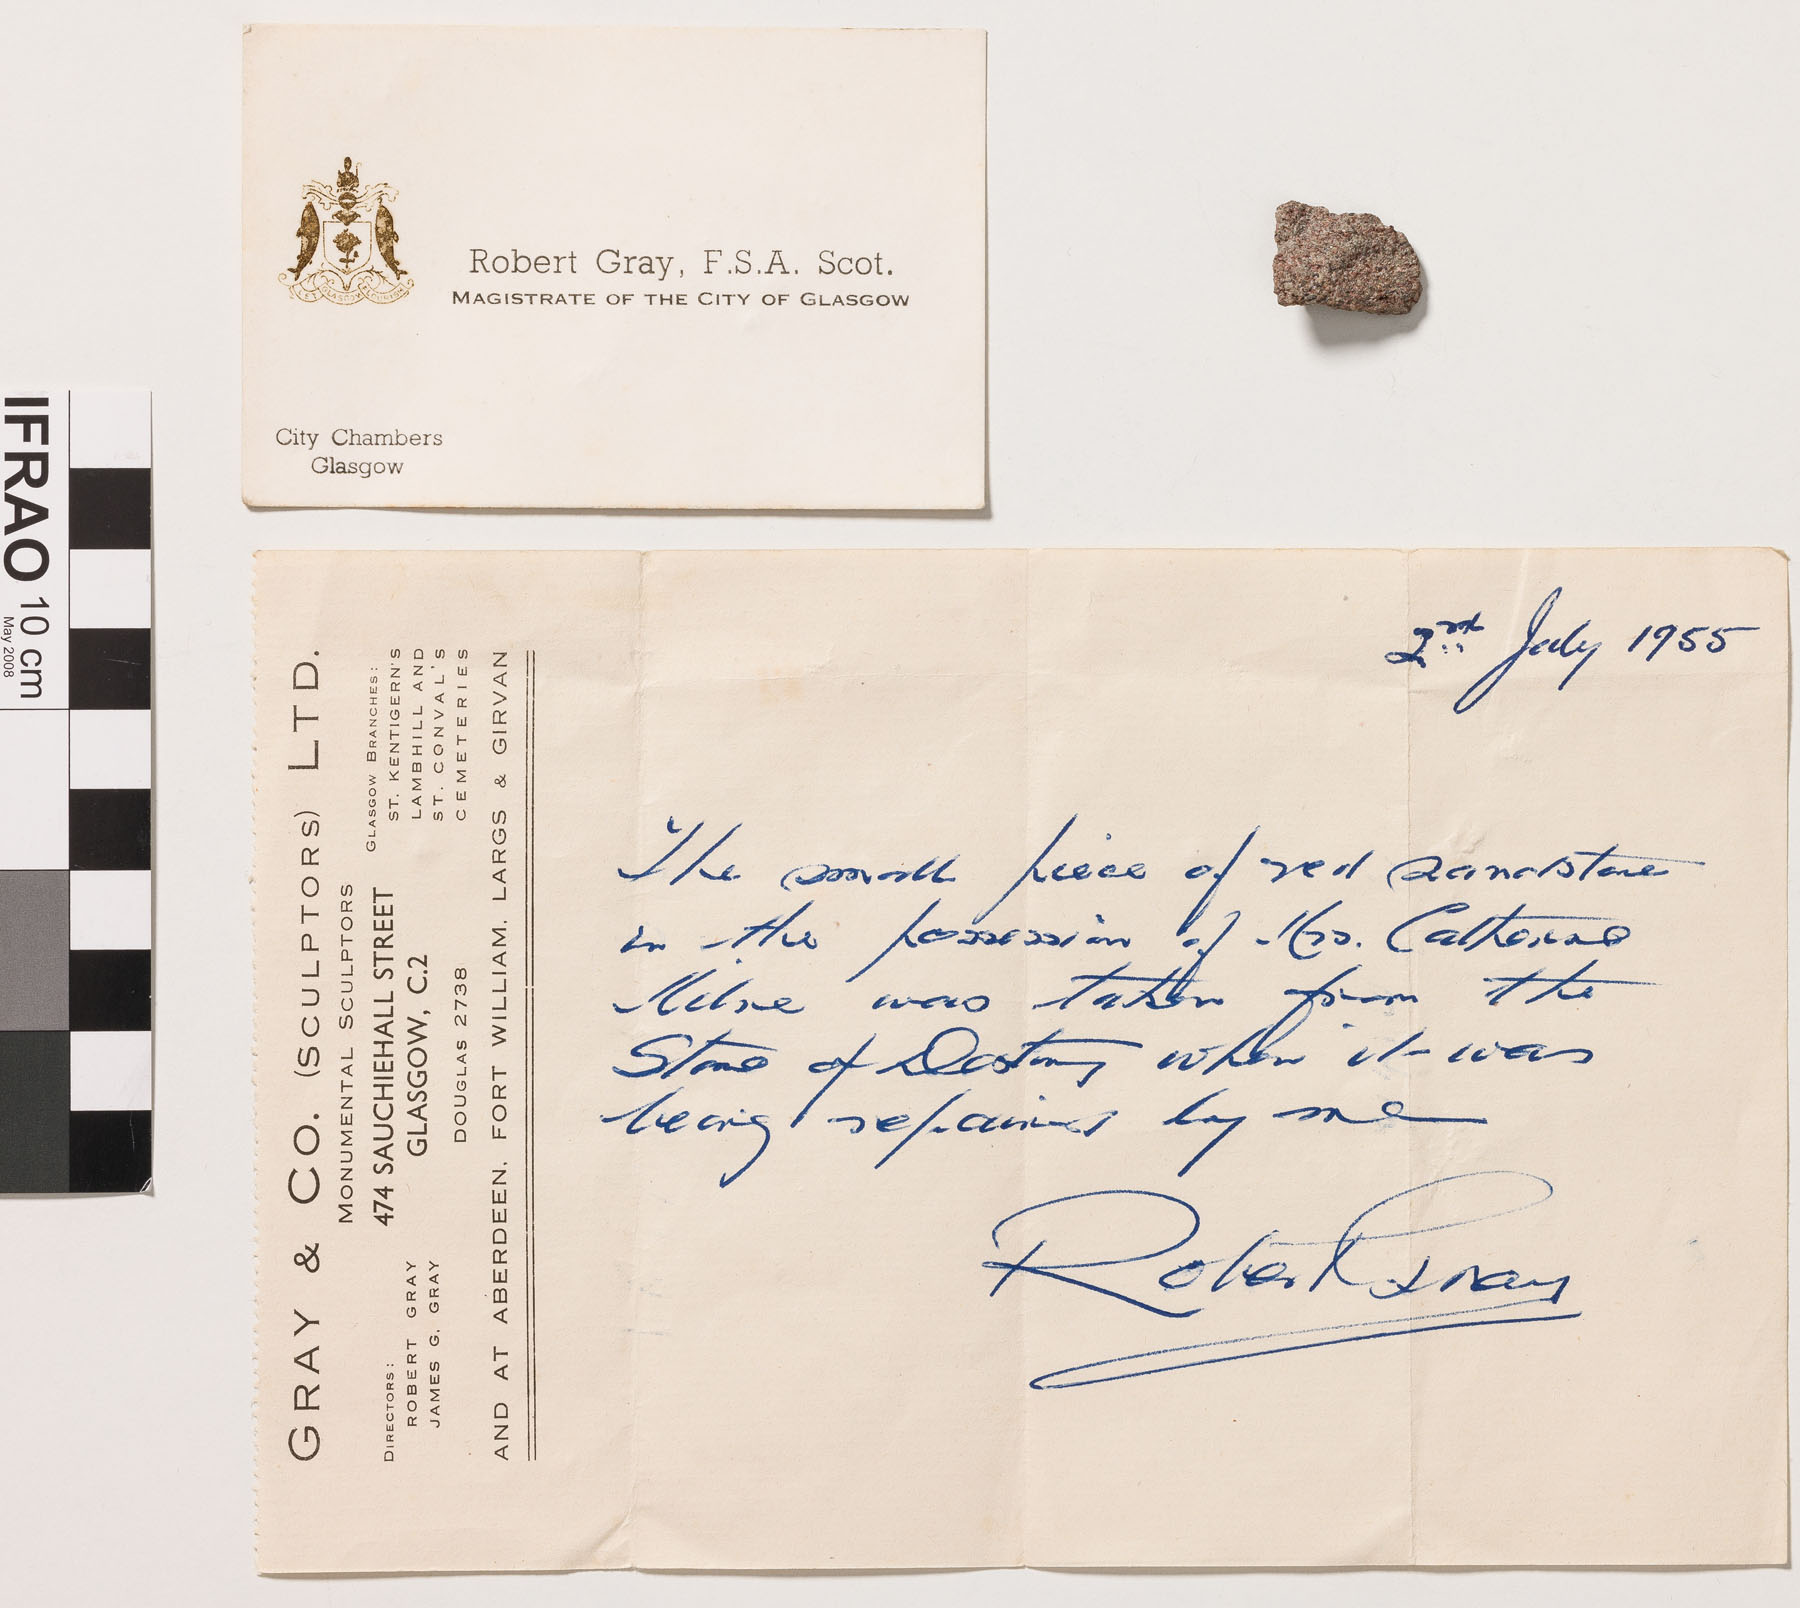 LET GLASGOW FLOURISH
Robert Gray, F.S.A. Scot.
MAGISTRATE OF THE CITY OF GLASGOW
City Chambers
Glasgow
IFRAO 10 cm
May 2008
GRAY & CO. (SCULPTORS) LTD.
MONUMENTAL SCULPTORS
474 SAUCHIEHALL STREET
GLASGOW, C.2
DOUGLAS 2738
DIRECTORS:
ROBERT GRAY
JAMES G. GRAY
GLASGOW BRANCHES:
ST. KENTIGERN'S
LAMBHILL AND
ST. CONVAL'S
CEMETERIES
AND AT ABERDEEN, FORT WILLIAM, LARGS & GIRVAN
2nd July 1955
The small piece of red sandstone
in the possession of Mrs. Catherine
Milne was taken from the
Stone of Destiny when it was
being repaired by me
Robert Gray